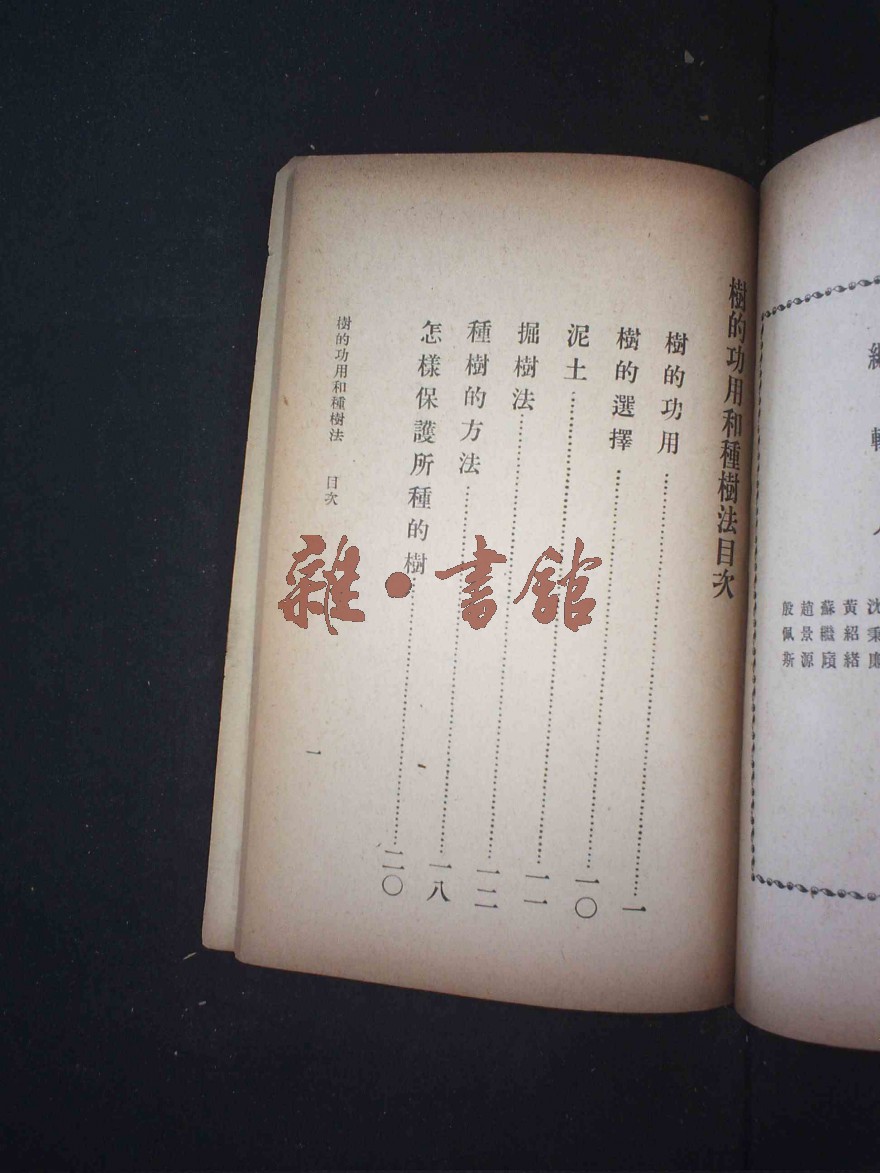 沈秉
黃紹緒
蘇繼廎
趙景源
殷佩斯
樹的功用和種樹法目次
樹的功用……一
樹的選擇……一〇
泥土……一一
掘樹法……一二
種樹的方法……一八
怎樣保護所種的樹……二〇
樹的功用和種樹法 目次
一
雜·書館